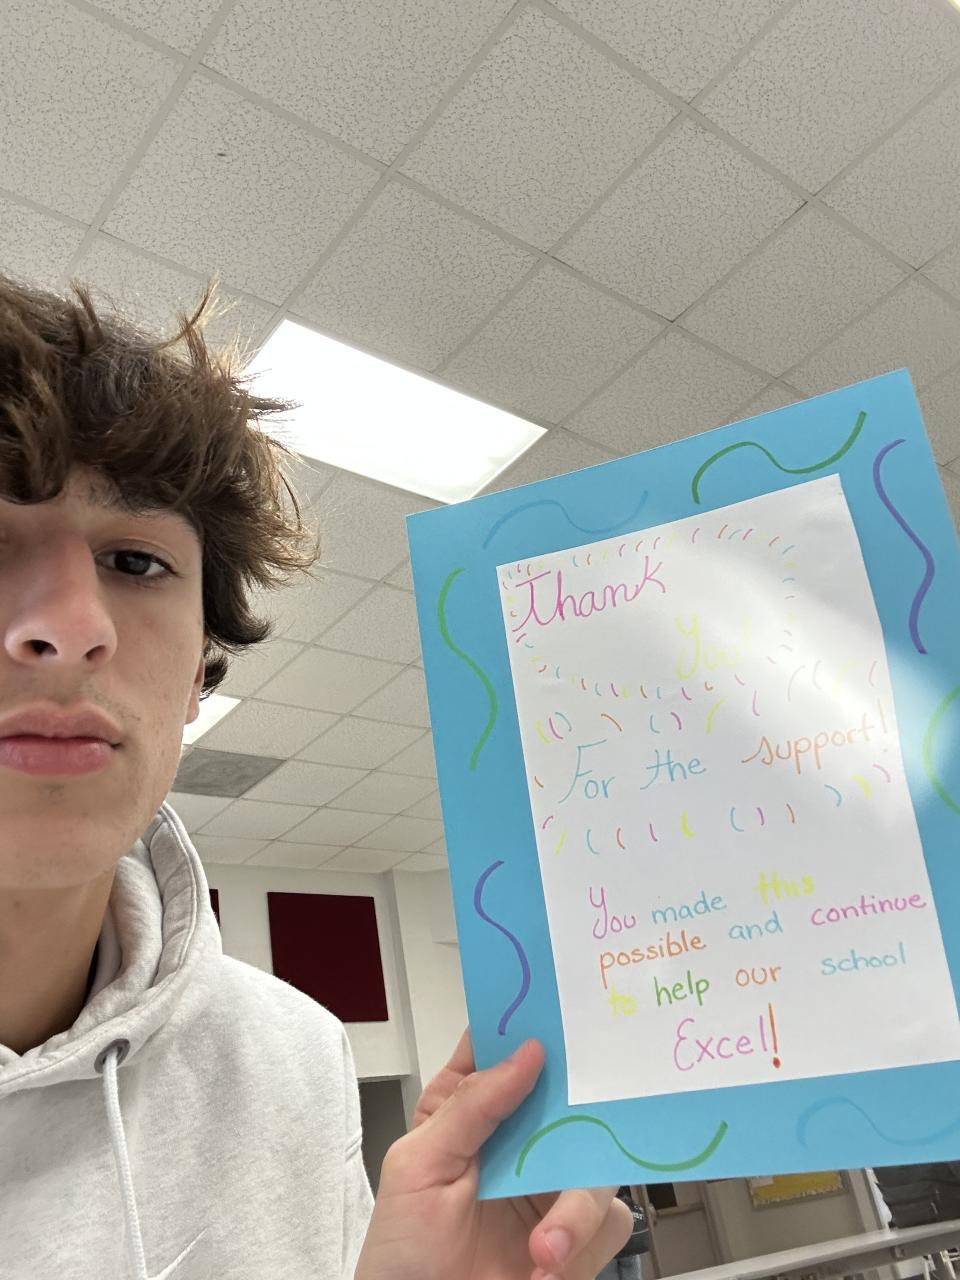 Thank
You!
For the support!
You made this
possible and continue
to help our school
Excel!